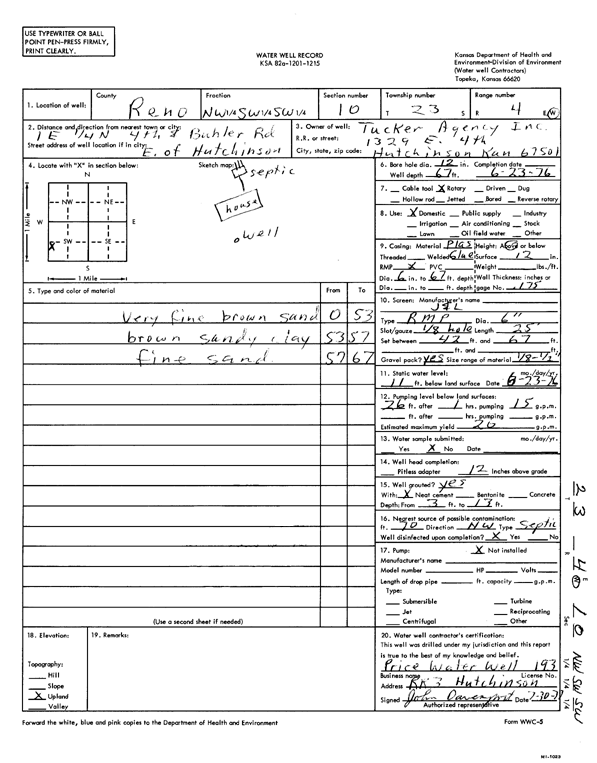 USE TYPEWRITER OR BALL
POINT PEN-PRESS FIRMLY,
PRINT CLEARLY.
WATER WELL RECORD
KSA 82a-1201-1215
Kansas Department of Health and
Environment-Division of Environment
(Water well Contractors)
Topeka, Kansas 66620
1. Location of well:
County
Reno
Fraction
NW 1/4 SW 1/4 SW 1/4
Section number
10
Township number
T 23 S
Range number
R 4 E/W
2. Distance and direction from nearest town or city:
1E 1/4N 4th & Buhler Rd
Street address of well location if in city:
E. of Hutchinson
3. Owner of well: Tucker Agency Inc.
R.R. or street: 1329 E. 4th
City, state, zip code: Hutchinson Kan 67501
4. Locate with "X" in section below:
N
NW NE
W E
SW SE
X
S
1 Mile
1 Mile
Sketch map:
septic
house
well
6. Bore hole dia. 12 in. Completion date
Well depth 67 ft. 6-23-76
7. Cable tool X Rotary Driven Dug
Hollow rod Jetted Bored Reverse rotary
8. Use: X Domestic Public supply Industry
Irrigation Air conditioning Stock
Lawn Oil field water Other
9. Casing: Material Plas Height: Above or below
Threaded Welded Glue Surface 12 in.
RMP X PVC Weight lbs./ft.
Dia. 6 in. to 67 ft. depth Wall Thickness: inches or
Dia. in. to ft. depth gage No. .175
5. Type and color of material From To
Very fine brown sand 0 53
brown sandy clay 53 57
fine sand 57 67
10. Screen: Manufacturer's name
Type RMP Dia. 6"
Slot/gauze 1/8 hole Length 25'
Set between 42 ft. and 67 ft.
ft. and ft.
Gravel pack? yes Size range of material 1/8-1/2
11. Static water level: mo./day/yr.
11 ft. below land surface Date 6-23-76
12. Pumping level below land surfaces:
26 ft. after 1 hrs. pumping 15 g.p.m.
ft. after hrs. pumping g.p.m.
Estimated maximum yield 20 g.p.m.
13. Water sample submitted: mo./day/yr.
Yes X No Date
14. Well head completion:
Pitless adapter 12 Inches above grade
15. Well grouted? yes
With: X Neat cement Bentonite Concrete
Depth: From 3 ft. to 13 ft.
16. Nearest source of possible contamination:
ft. 70 Direction NW Type Septic
Well disinfected upon completion? X Yes No
17. Pump: X Not installed
Manufacturer's name
Model number HP Volts
Length of drop pipe ft. capacity g.p.m.
Type:
Submersible Turbine
Jet Reciprocating
Centrifugal Other
(Use a second sheet if needed)
18. Elevation:
Topography:
Hill
Slope
X Upland
Valley
19. Remarks:
20. Water well contractor's certification:
This well was drilled under my jurisdiction and this report
is true to the best of my knowledge and belief.
Price Water Well 193
Business name License No.
Address RR 3 Hutchinson
Signed John Davenport Date 7-30-
Authorized representative
Forward the white, blue and pink copies to the Department of Health and Environment
Form WWC-5
T 23 R 4 E W Sec 10 NW 1/4 SW 1/4 SW 1/4